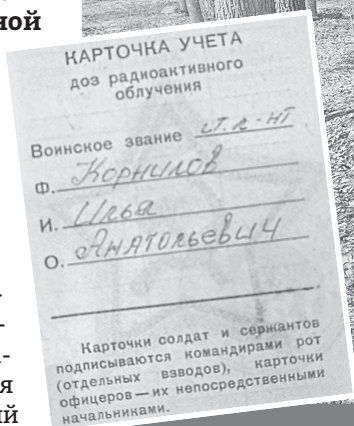 ной
КАРТОЧКА УЧЕТА
доз радиоактивного
облучения
Воинское звание ст. л-нт
Ф. Корнилов
И. Илья
О. Анатольевич
Карточки солдат и сержантов
подписываются командирами рот
(отдельных взводов), карточки
офицеров — их непосредственными
начальниками.
-
-
-
я
ий